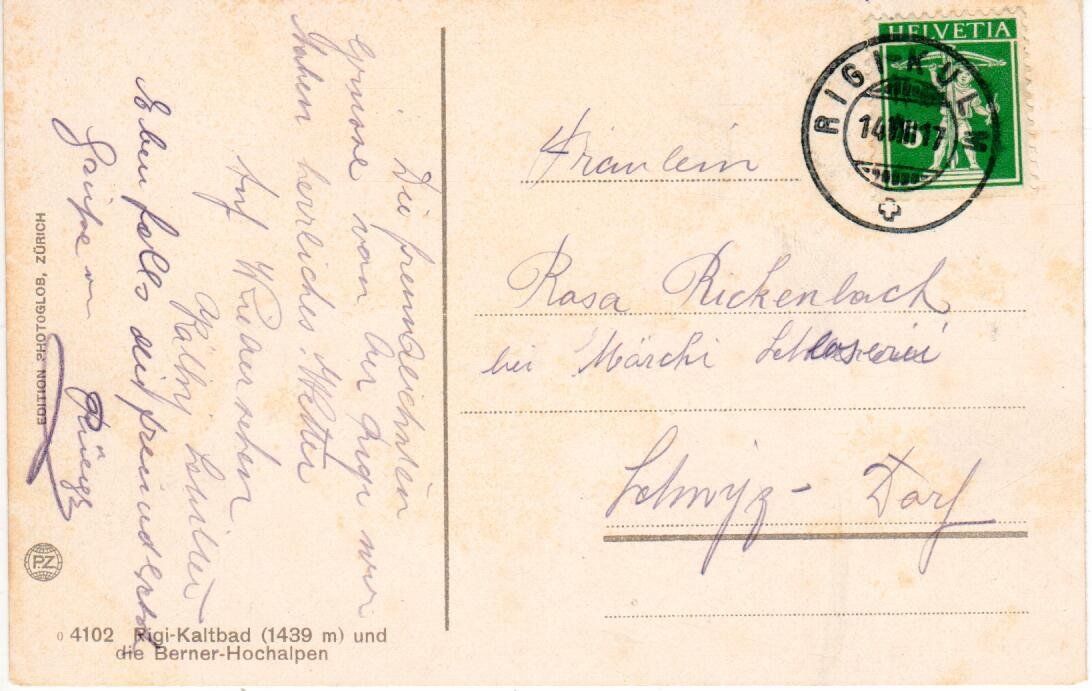 HELVETIA
RIGI-KULM
14.VIII.17
Fräulein
Rosa Rickenbach
bei Märchi Schlosserei
Schwyz - Dorf
Die freundlichsten
Grüsse von der Rigi wir
haben herrliches Wetter
Auf Wiedersehen
Ebenfalls die freundlichst
EDITION PHOTOGLOB, ZÜRICH
PZ
4102 Rigi-Kaltbad (1439 m) und
die Berner-Hochalpen